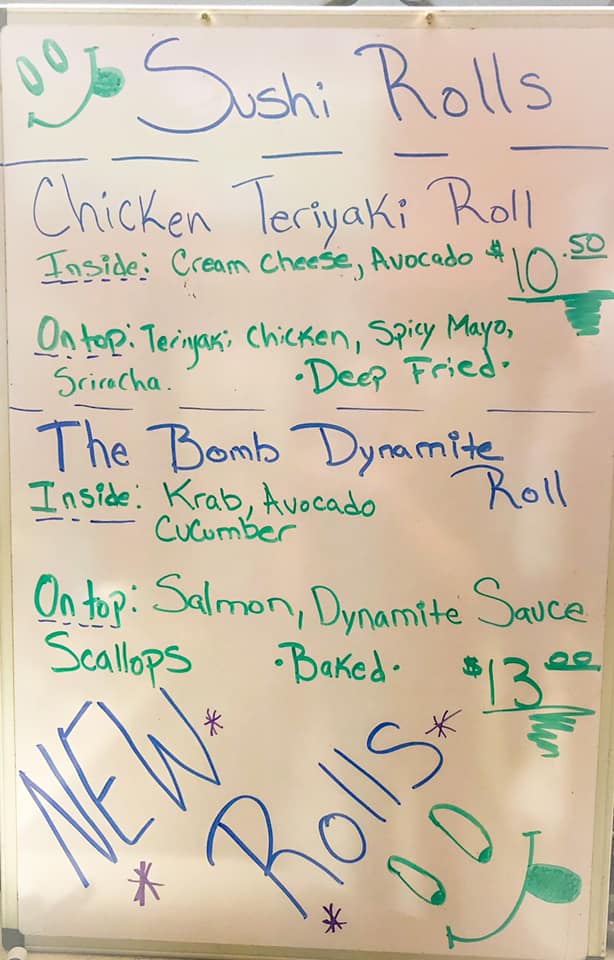 Sushi Rolls
Chicken Teriyaki Roll
Inside: Cream Cheese, Avocado $10.50
On top: Teriyaki Chicken, Spicy Mayo,
Sriracha. •Deep Fried•
The Bomb Dynamite
Roll
Inside: Krab, Avocado
Cucumber
On top: Salmon, Dynamite Sauce
Scallops •Baked• $13.00
NEW
Rolls